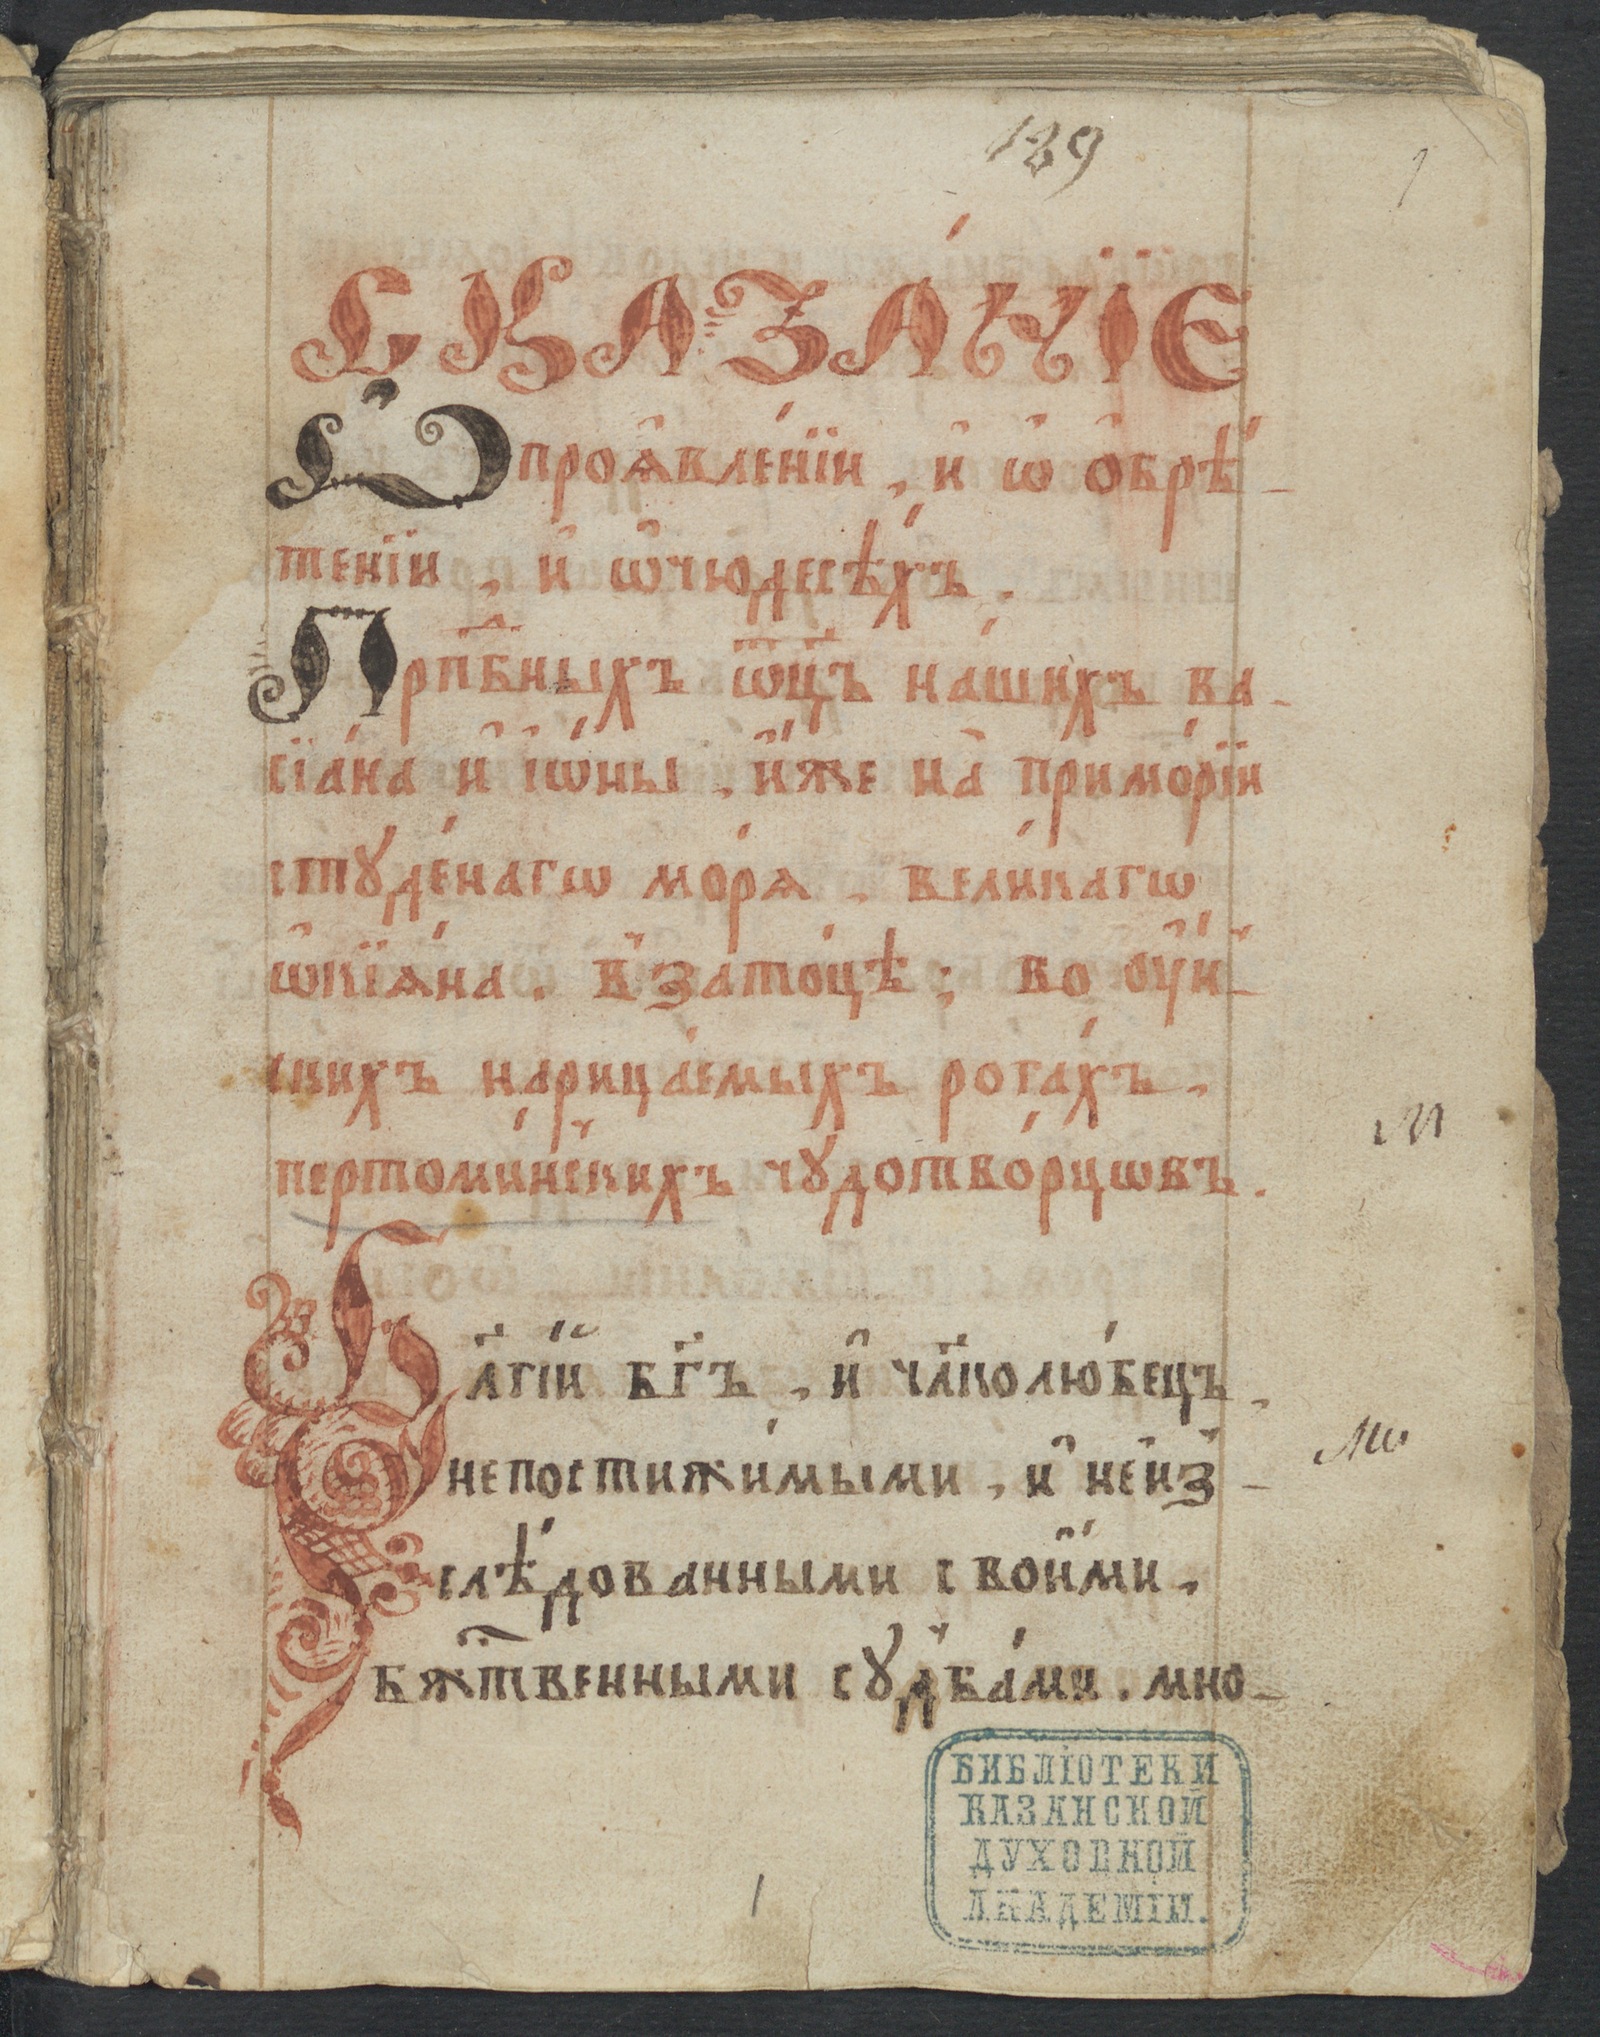 189
1
СКАЗА́НЇЕ
Ѡ҆ проѧ҆вле́нїи, и҆ ѡ҆ ѻ҆брѣ́-
тенїи, и҆ ѡ҆ чюдесѣ́хъ.
Прпⷣбныхъ ѿц҃ъ на́шихъ ва-
сїа́на и҆ і҆ѡ́ны, и҆́же на примо́рїи
стꙋде́нагѡ мо́рѧ, вели́кагѡ
ѡ҆кїѧ́на. в затоцѣ; во оу҆́н-
скихъ нарица́емыхъ рога́хъ,
пертоми́нскихъ чꙋдотво́рцѡвъ.
Бл҃гі́й бг҃ъ, и҆ чл҃колю́бецъ,
непостижи́мыми, и҆ неиз-
слѣ́дованными свои҆́ми,
бжⷭ҇твенными сꙋдба́ми. мно-
БИБЛІОТЕКИ
КАЗАНСКОЙ
ДУХОВНОЙ
АКАДЕМІИ.
1